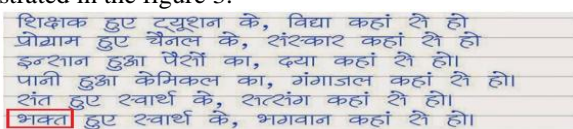 strated in the figure 3.
शिक्षक हुए ट्यूशन के, विद्या कहां से हो
प्रोग्राम हुए चैनल के, संस्कार कहां से हो
इन्सान हुआ पैसों का, दया कहां से हो।
पानी हुआ केमिकल का, गंगाजल कहां से हो।
संत हुए स्वार्थ के, सत्संग कहां से हो।
भक्त हुए स्वार्थ के, भगवान कहां से हो।